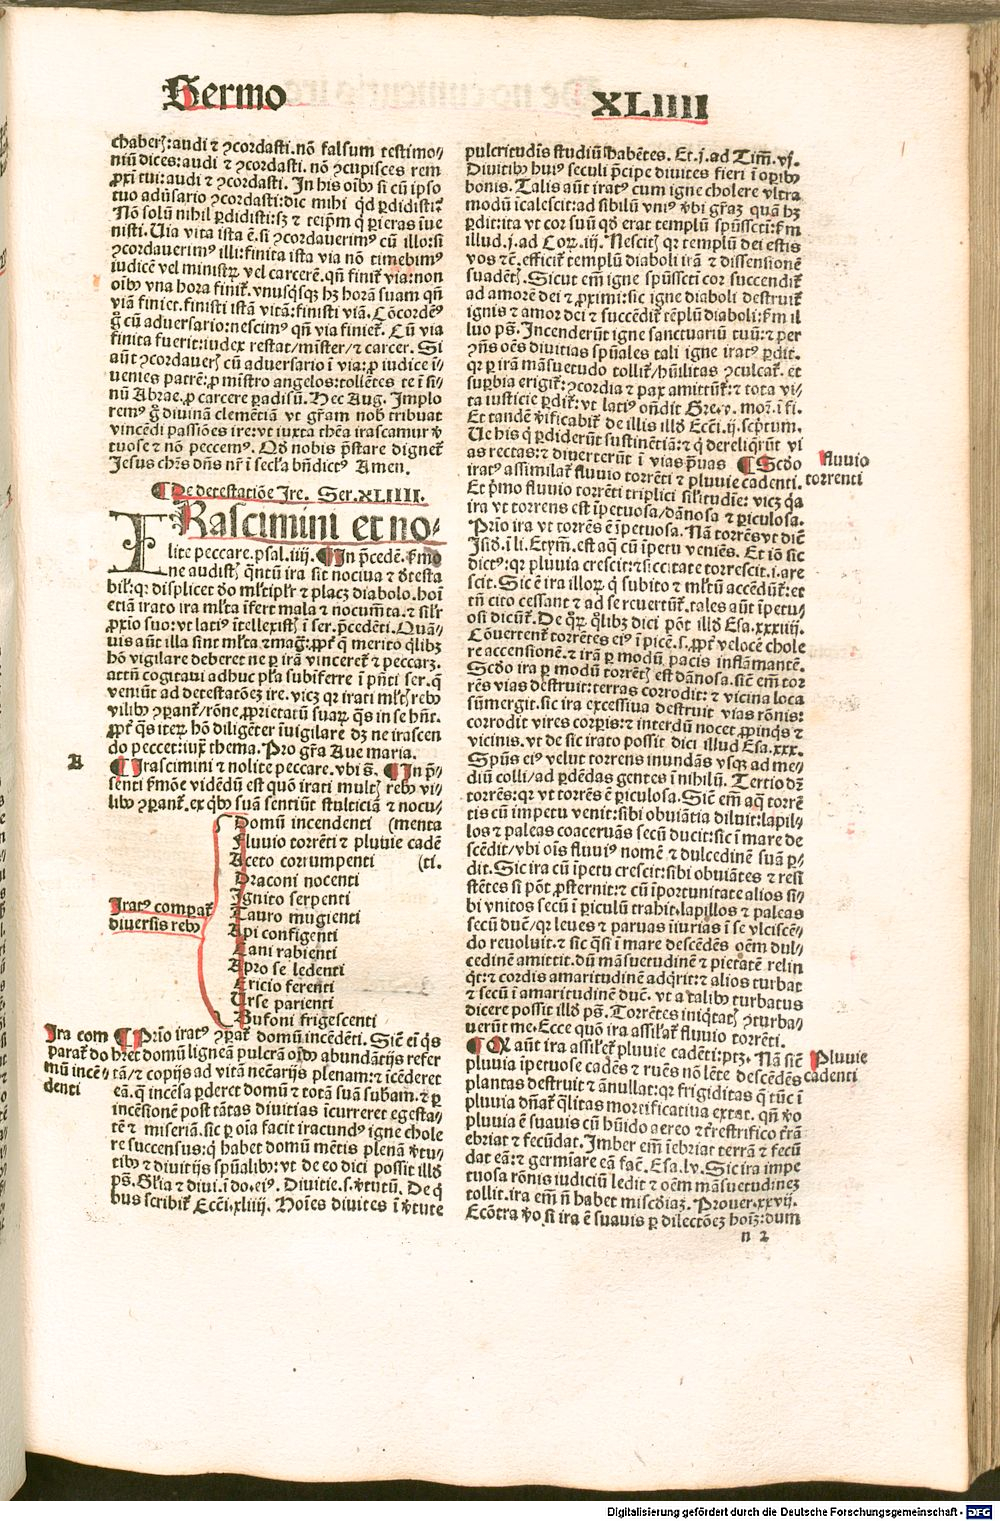 Sermo
XLIIII
chaberꝭ: audi ⁊ ꝯcordasti. nō falsum testimo-
niū dices: audi ⁊ ꝯcordasti. nō ꝯcupisces rem
ꝓxi tui: audi ⁊ ꝯcordasti. In his oībꝰ si cū ipso
tuo adūsario ꝯcordasti: dic mihi qd ꝑdidisti?
Nō solū nihil ꝑdidisti: sꝫ ⁊ teip̄m q̇ ꝑieras īue
nisti. Uia vita ista ē. si ꝯcordauerimꝰ cū illo: si
ꝯcordauerimꝰ illi: finita ista via nō timebimꝰ
iudicē vel ministrꝝ vel carcerē. qn̄ finit᷑ via: non
oībꝰ vna hora finit᷑. vnusq̇sqꝫ hꝫ horā suam qn̄
viā finiet. finisti istā vitā: finisti viā. Cōcordēꝰ
g̊ cū aduersario: nescimꝰ qn̄ via finiet᷑. Cū via
finita fuerit: iudex restat/ mīster/ ⁊ carcer. Si
aūt ꝯcordauerꝭ cū aduersario ī via: ꝓ iudice ī-
uenies patrē: ꝓ mīstro angelos: tollētes te ī si-
nū Abrae. ꝓ carcere ꝑadisū. Hec Aug. Implo
remꝰ g̊ diuinā clemētiā vt gr̄am nobꝭ tribuat
vincēdi passiōes ire: vt iuxta thēa irascamur v̓
tuose ⁊ nō peccemꝰ. Qd̓ nobis p̄stare dignet᷑
Jesus chrs dn̄s nr̄ ī secl̓a bn̄dictꝰ Amen.
¶ De detestatiōe Ire. Ser. XLIIII.
IRascimini et no-
lite peccare. psal. iiij. ¶ In p̄cedē. s̓mo
ne audistꝭ qn̄tū ira sit nociua ⁊ d̓testa
bil̓: qꝛ displicet d̓o ml̓tipl̓r ⁊ placꝫ diabolo. hoī
etiā irato ira ml̓ta īfert mala ⁊ nocum̄ta. ⁊ sil̓r
ꝓxīo suo: vt latiꝰ ītellexistꝭ ī ser. p̄cedēti. Quā-
uis aūt illa sint ml̓ta ⁊ mag̃: ꝓpt̓ q̄ merito q̇libꝫ
hō vigilare deberet ne ꝑ irā vinceret᷑ ⁊ peccarꝫ.
attn̄ cogitaui adhuc pl̓a subīferre ī pn̄ti ser. q̄
veniūt ad detestatōeꝫ ire. vicꝫ qꝛ irati ml̓tꝭ rebꝰ
vilibꝰ ꝯꝑant᷑/ rōne ꝓprietatū suaꝝ q̄s in se hn̄t.
ꝓpt̓ q̄s iteꝝ hō diligēter īuigilare dꝫ ne irascen
do peccet: iuxͣ thema. Pro gr̄a Aue maria.
A
¶ Irascimini ⁊ nolite peccare. vbi s̄. ¶ In p̄-
senti s̓mōe vidēdū est quō irati multꝭ rebꝰ vi-
libꝰ ꝯꝑant᷑. ex q̇bꝰ suā sentiūt stulticiā ⁊ nocu-
Domū incendenti (menta
Fluuio torrēti ⁊ pluuie cadē
Aceto corrumpenti (ti.
Draconi nocenti
Ignito serpenti
Tauro mugienti
Iratꝰ comparat᷑
diuersis rebꝰ
Api configenti
Cani rabienti
Apro se ledenti
Ericio ferenti
Urse parienti
Bufoni frigescenti
Ira com
parat᷑ do
mū incē-
denti
¶ Prīo iratꝰ ꝯꝑat᷑ domū incēdēti. Sic̄ em̄ q̇s
hꝫet domū ligneā pulcrā oībꝰ abundātijs refer
tā/ ⁊ copijs ad vitā nec̄arijs plenam: ⁊ īcēderet
eā. q̇ incēsa ꝑderet domū ⁊ totā suā subam. ⁊ ꝑ
incēsionē post tātas diuitias īcurreret egesta-
tē ⁊ miseriā. sic ꝑ oīa facit iracundꝰ igne chole
re succensus: q̇ habet domū mētis plenā v̓tu-
tibꝰ ⁊ diuitijs spūalibꝰ: vt de eo dici possit illd̓
pš. Gl̓ia ⁊ diui. ī do. eiꝰ. Diuitie. s. v̓tutū. De q̇
bus scribit᷑ Ecc̄i. xliiij. Hoīes diuites ī v̓tute
pulcritudīs studiū habētes. Et. j. ad Tim̄. vj.
Diuitibꝰ huiꝰ seculi p̄cipe diuites fieri ī oꝑibꝰ
bonis. Talis aūt iratꝰ cum igne cholere vltra
modū īcalescit: ad sibilū vniꝰ v̓bi gr̄aꝫ quā hꝫ
ꝑdit: ita vt cor suū qd̓ erat templū spūssct̄i: s̓m
illud. j. ad Coꝝ. iij. Nescitꝭ qꝛ templū dei estis
vos ⁊c̄. efficit᷑ templū diaboli irā ⁊ dissensionē
suadētꝭ. Sicut em̄ igne spūssct̄i cor succendit᷑
ad amorē dei ⁊ ꝓximi: sic igne diaboli destruit᷑
ignis ⁊ amor dei ⁊ succēdit᷑ tēplū diaboli: s̓m il
luo pš. Incenderūt igne sanctuariū tuū: ⁊ per
ꝯn̄s oēs diuitias spūales tali igne iratꝰ ꝑdit.
qꝛ ꝑ irā māsuetudo tollit᷑/ hūilitas ꝯculcat᷑. et
suꝑbia erigit᷑: ꝯcordia ⁊ pax amittūt᷑: ⁊ tota vi-
ta iusticie ꝑdit᷑: vt latiꝰ on̄dit Gre. v. mor. ī fi.
Et tandē v̓ificabit᷑ de illis illd̓ Ecc̄i. ij. scp̄tum.
Ue his q̇ ꝑdiderūt sustinētiā: ⁊ q̇ dereliq̄rūt vi
as rectas: ⁊ diuerterūt ī vias p̄uas ¶ Scd̓o
iratꝰ assimilat᷑ fluuio torrēti ⁊ pluuie cadenti.
Fluuio
torrenti
Et p̄mo fluuio torrēti triplici sil̓itudīe: vicꝫ q̇a
ira vt torrens est īpetuosa/ dānosa ⁊ ꝑiculosa.
Prīo ira vt torrēs ē īpetuosa. Nā torrēs vt dic̄
Isid̓. ī li. Etym̄. est aq̄ cū īpetu veniēs. Et iō sic
dictꝰ: qꝛ pluuia crescit: ⁊ siccitate torrescit. i. are
scit. Sic ē ira illoꝝ q̇ subito ⁊ ml̓tū accēdūt᷑: et
tn̄ cito cessant ⁊ ad se reuertūt᷑. tales aūt īpetu-
osi dicūt᷑. De q̊ꝝ q̇libꝫ dici pōt illd̓ Esa. xxxiiij.
Cōuertent᷑ torrētes eiꝰ ī picē. s. ꝓpt̓ velocē chole
re accensionē. ⁊ irā ꝑ modū pacis inflāmantē.
Scd̓o ira ꝑ modū torrētꝭ est dānosa. sic̄ em̄ tor
rēs vias destruit: terras corrodit: ⁊ vicina loca
sūmergit. sic ira excessiua destruit vias rōnis:
corrodit vires corꝑis: ⁊ interdū nocet ꝓpinq̇s ⁊
vicinis. vt de sic irato possit dici illud Esa. xxx.
Spūs eiꝰ velut torrens inundās vsqꝫ ad me-
diū colli/ ad ꝑdēdas gentes ī nihilū. Tertio dꝫ
torrēs: qꝛ vt torrēs ē ꝑiculosa. Sic̄ em̄ aq̄ torrē
tis cū impetu venit: sibi obuiātia diluit: lapil-
los ⁊ paleas coaceruās secū ducit: sic ī mare de
scēdit/ vbi oīs fluuiꝰ nomē ⁊ dulcedinē suā ꝑ-
dit. Sic ira cū īpetu crescit: sibi obuiātes ⁊ resi
stētes si pōt ꝓsternit: ⁊ cū īportunitate alios si-
bi vnitos secū ī ꝑiculū trahit. lapillos ⁊ paleas
secū ducē/ qꝛ leues ⁊ paruas iurias ī se vlciscē-
do reuoluit. ⁊ sic q̇si ī mare descēdēs oēm dul-
cedinē amittit. dū māsuetudinē ⁊ pietatē relin
q̇t: ⁊ cordis amaritudinē adq̇rit: ⁊ alios turbat
⁊ secū ī amaritudinē ducē. vt a talibꝰ turbatus
dicere possit illd̓ pš. Torrētes iniq̇tatꝭ ꝯturba-
uerūt me. Ecce quō ira assil̓at᷑ fluuio torrēti.
¶ Qꝛ aūt ira assil̓et᷑ pluuie cadēti: ptꝫ. Nā sic̄
Pluuie
cadenti
pluuia īpetuose cadēs ⁊ ruēs nō lēte descēdēs
plantas destruit ⁊ ānullat: qꝛ frigiditas q̄ tūc ī
pluuia dn̄at᷑ q̄litas mortificatiua extat. qn̄ v̓o
pluuia ē suauis cū hūido aereo ⁊ t̓restrifico t̓rā
ebriat ⁊ fecūdat. Imber em̄ īebriat terrā ⁊ fecū
dat eā: ⁊ germīare eā fac̄. Esa. lv. Sic ira impe
tuosa rōnis iudiciū ledit ⁊ oēm māsuetudineꝫ
tollit. ira em̄ n̄ habet misc̄diaꝫ. Prouer. xxvij.
Ecōtra v̓o si ira ē suauis ꝑ dilectōeꝫ hoīꝫ: dum
n 2
Digitalisierung gefördert durch die Deutsche Forschungsgemeinschaft - DFG